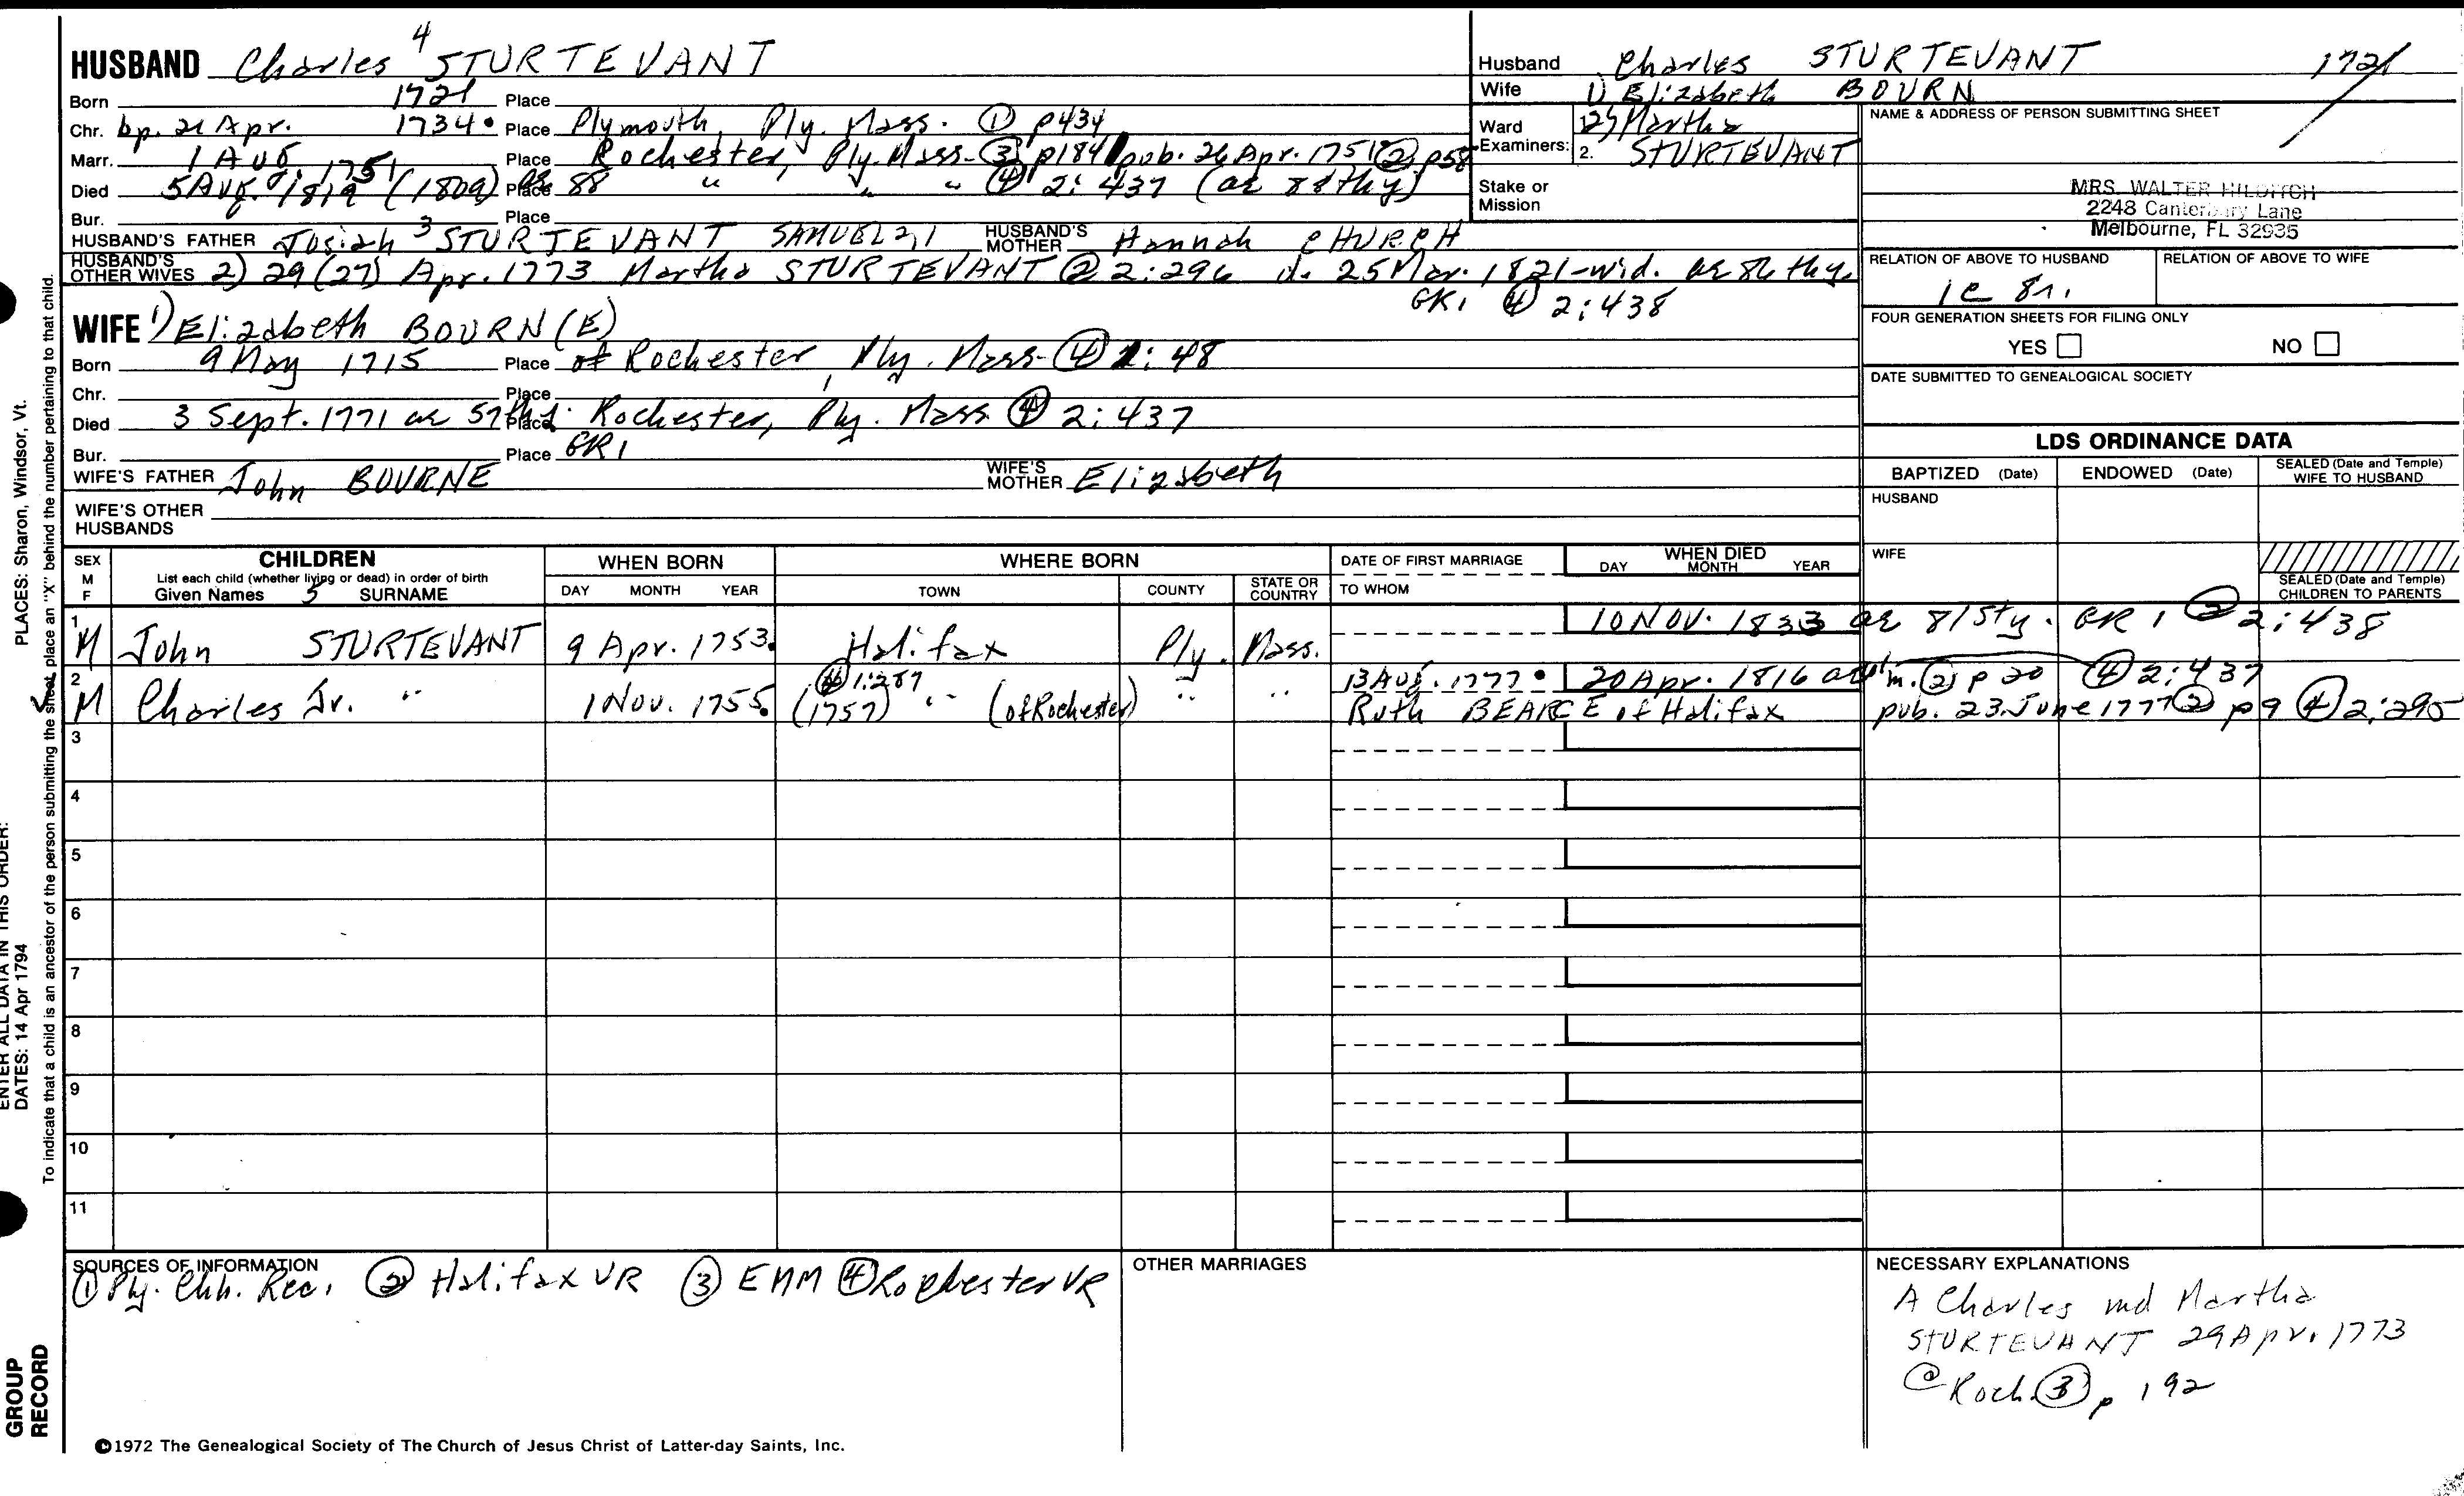 HUSBAND Charles 4 STURTEVANT
Born 1721 Place
Chr. bp. 21 Apr. 1734. Place Plymouth, Ply. Mass. ① p434
Marr. 1 AUG. 1751 Place Rochester, Ply. Mass- ③ p184 pub. 26 Apr. 1751 ② p58
Died 5 Aug. 1819 (1809) ae 88 Place " " " ④ 2: 437 (ae 88thy)
Bur. Place
HUSBAND'S FATHER Josiah 3 STURTEVANT SAMUEL 2,1 HUSBAND'S MOTHER Hannah CHURCH
HUSBAND'S OTHER WIVES 2) 29 (27) Apr. 1773 Martha STURTEVANT ② 2:296 d. 25 Mar. 1821-wid. ae 86 thy.
GR1 ④ 2:438
Husband Charles STURTEVANT 1721
Wife 1) Elizabeth BOURN
Ward 2) Martha
Examiners: 2. STURTEVANT
Stake or
Mission
NAME & ADDRESS OF PERSON SUBMITTING SHEET
MRS. WALTER HILDITCH
2248 Canterbury Lane
Melbourne, FL 32935
RELATION OF ABOVE TO HUSBAND RELATION OF ABOVE TO WIFE
1c 8r.
FOUR GENERATION SHEETS FOR FILING ONLY
YES NO
DATE SUBMITTED TO GENEALOGICAL SOCIETY
WIFE 1) Elizabeth BOURN (E)
Born 9 May 1715 Place of Rochester, Ply. Mass- ④ 1: 48
Chr. Place
Died 3 Sept. 1771 ae 57thy. Place Rochester, Ply. Mass ④ 2: 437
Bur. Place GR1
WIFE'S FATHER John BOURNE WIFE'S MOTHER Elizabeth
WIFE'S OTHER
HUSBANDS
LDS ORDINANCE DATA
BAPTIZED (Date) ENDOWED (Date) SEALED (Date and Temple) WIFE TO HUSBAND
HUSBAND
WIFE
SEALED (Date and Temple) CHILDREN TO PARENTS
SEX M F CHILDREN List each child (whether living or dead) in order of birth Given Names 5 SURNAME
WHEN BORN DAY MONTH YEAR
WHERE BORN TOWN COUNTY STATE OR COUNTRY
DATE OF FIRST MARRIAGE TO WHOM
WHEN DIED DAY MONTH YEAR
1 M John STURTEVANT 9 Apr. 1753. Halifax Ply. Mass. 10 NOV. 1833 ae 81sty. GR 1 2:438
④ 1:287 13 Aug. 1777. 20 Apr. 1816 m. ② p 20 ④ 2:437
2 M Charles Jr. " 1 Nov. 1755. (1757) " (of Rochester) " " Ruth BEARCE of Halifax pub. 23 June 1777 ② p 9 ④ 2:295
3
4
5
6
7
8
9
10
11
SOURCES OF INFORMATION
① Ply. Chh. Rec. ② Halifax VR ③ EMM ④ Rochester VR
OTHER MARRIAGES
NECESSARY EXPLANATIONS
A Charles md Martha
STURTEVANT 29 Apr. 1773
@ Roch. ③ p 192
©1972 The Genealogical Society of The Church of Jesus Christ of Latter-day Saints, Inc.
ENTER ALL DATA IN THIS ORDER:
DATES: 14 Apr 1794
PLACES: Sharon, Windsor, Vt.
To indicate that a child is an ancestor of the person submitting the sheet, place an "X" behind the number pertaining to that child.
GROUP
RECORD